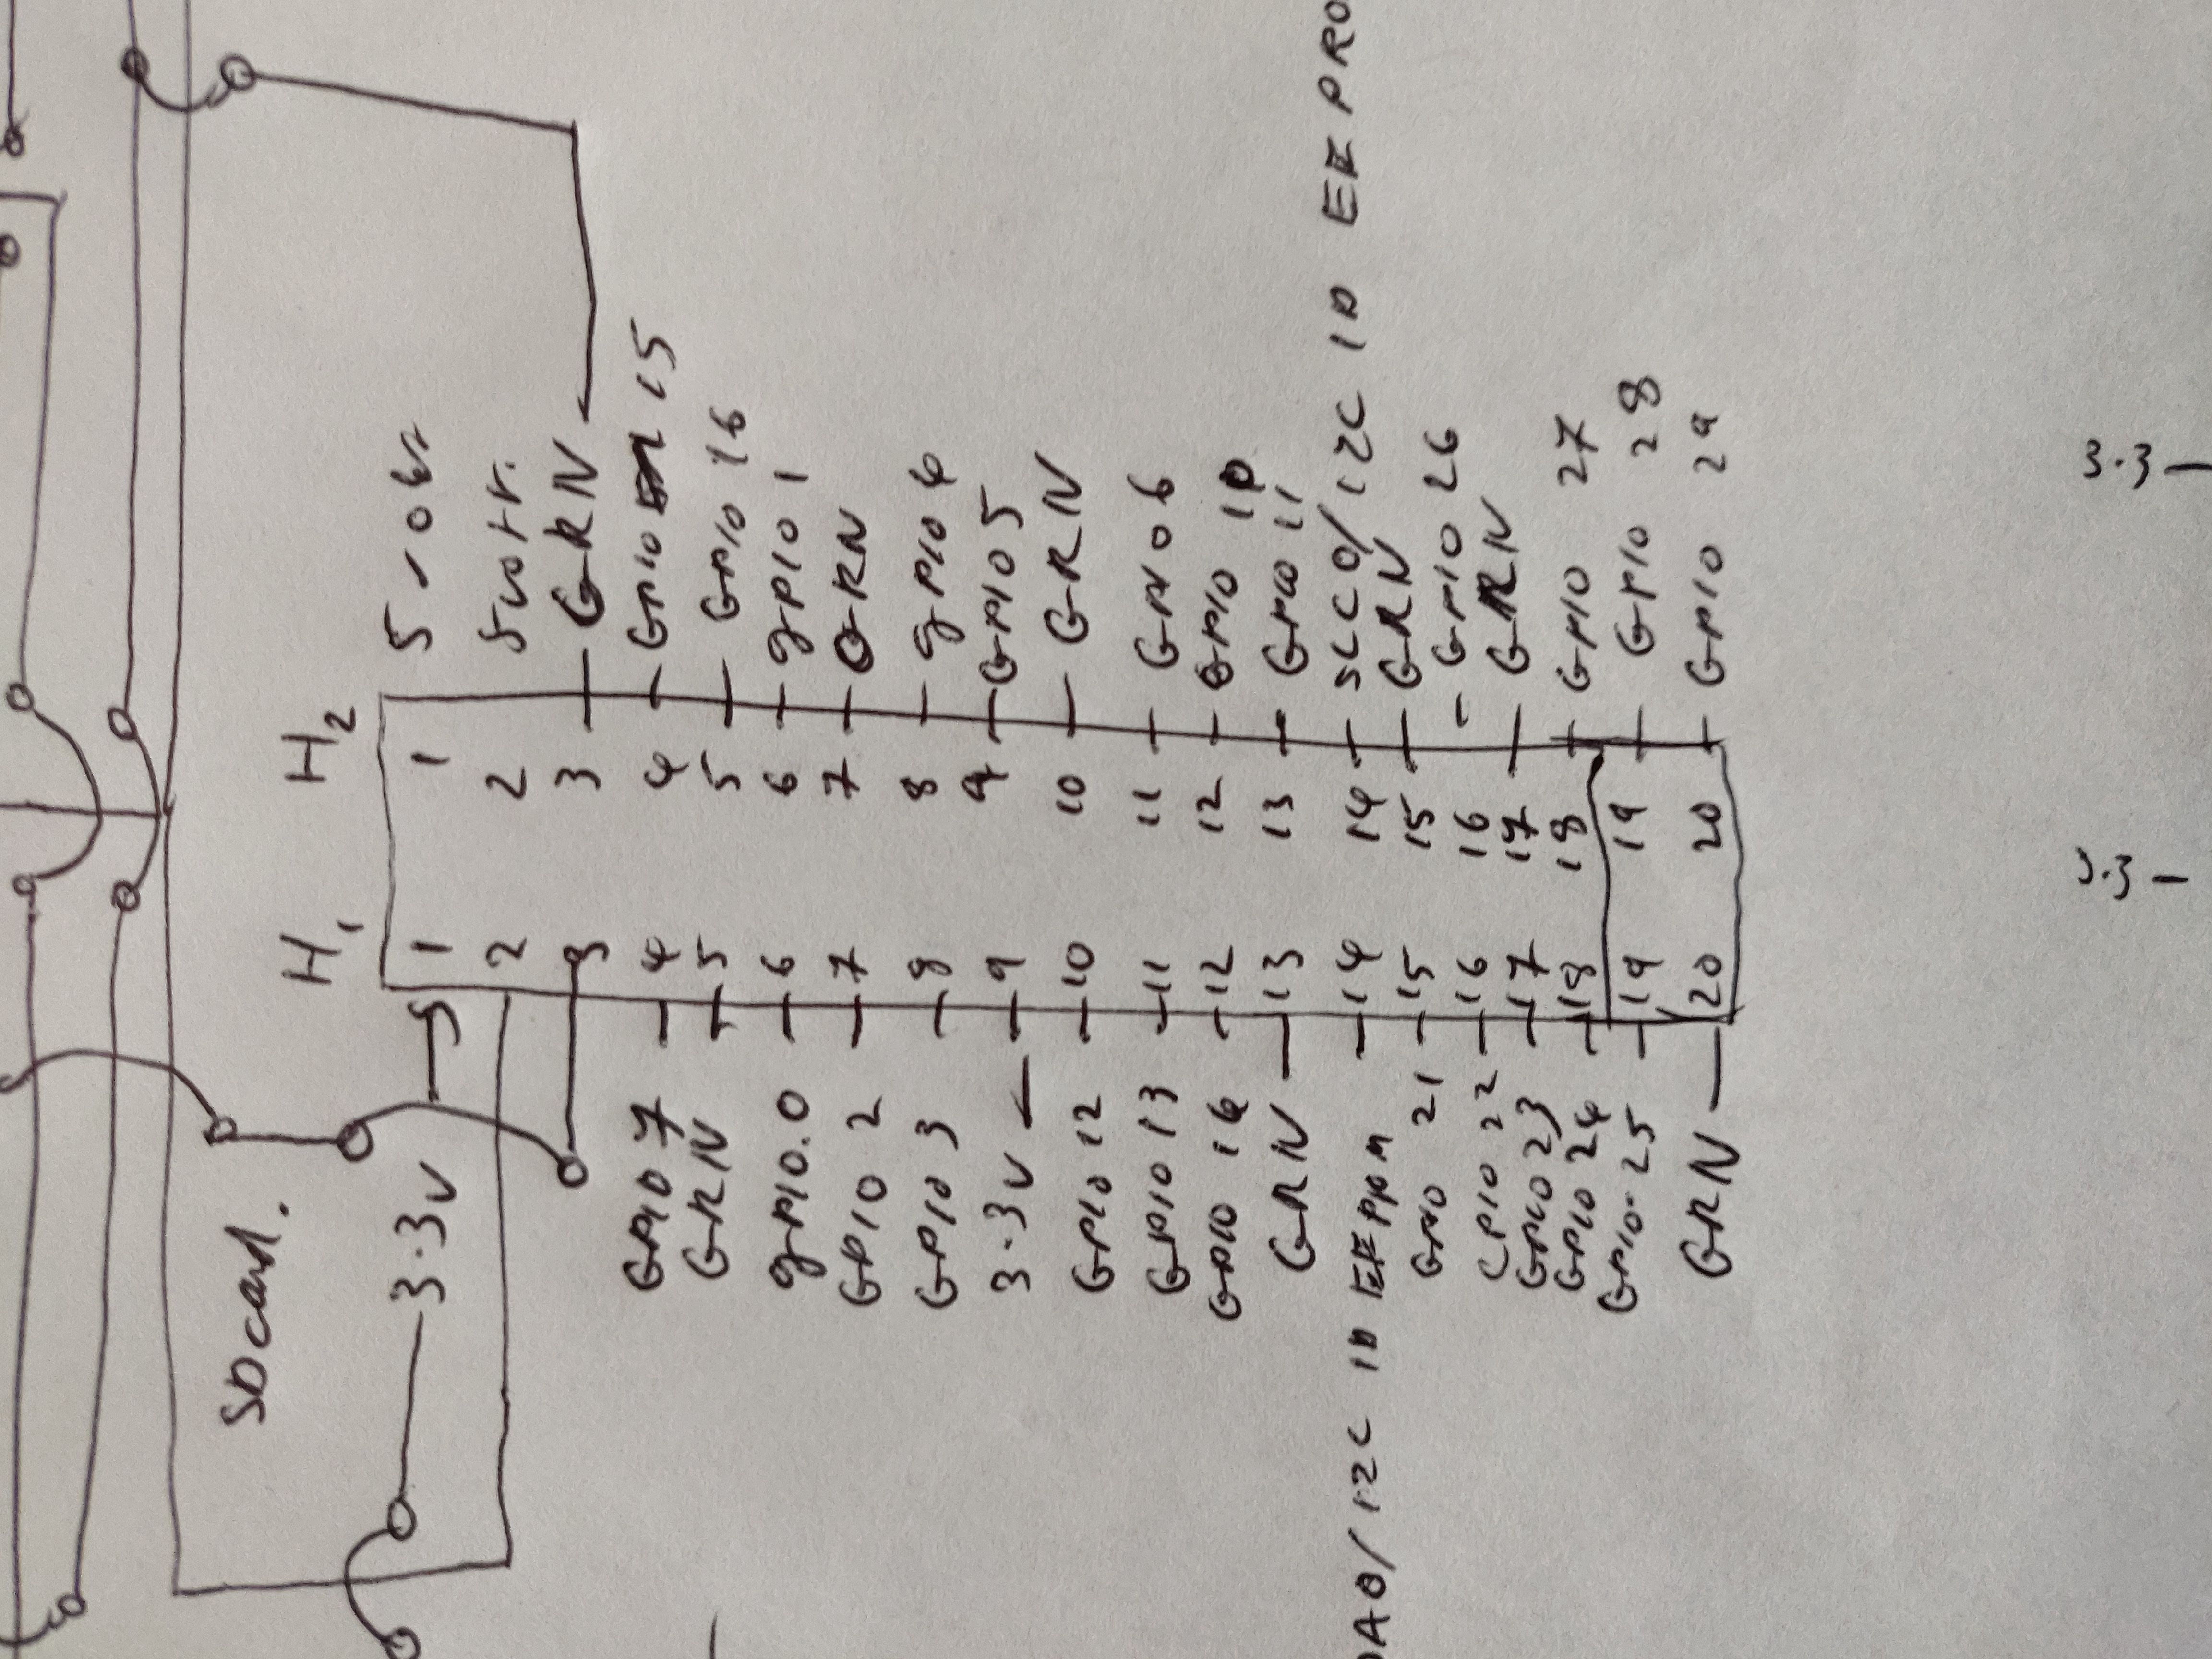 SDcard.
3.3v
H1 H2
5 1 1 5volt
2 2 5volt.
3 3 GRN
GPIO 7 4 4 GPIO 15
GRN 5 5 GPIO 16
gPIO.0 6 6 gPIO 1
GPIO 2 7 7 GRN
GPIO 3 8 8 gPIO 4
3.3v 9 9 GPIO 5
GPIO 12 10 10 GRN
GPIO 13 11 11 GPIO 6
GPIO 14 12 12 GPIO 10
GRN 13 13 GPIO 11
DA0/I2C ID EEPROM 14 14 SCC0/I2C ID EEPRO
GPIO 21 15 15 GRN
GPIO 22 16 16 GPIO 26
GPIO 23 17 17 GRN
GPIO 24 18 18 GPIO 27
GPIO.25 19 19 GPIO 28
GRN 20 20 GPIO 29
3.3-
3.3-